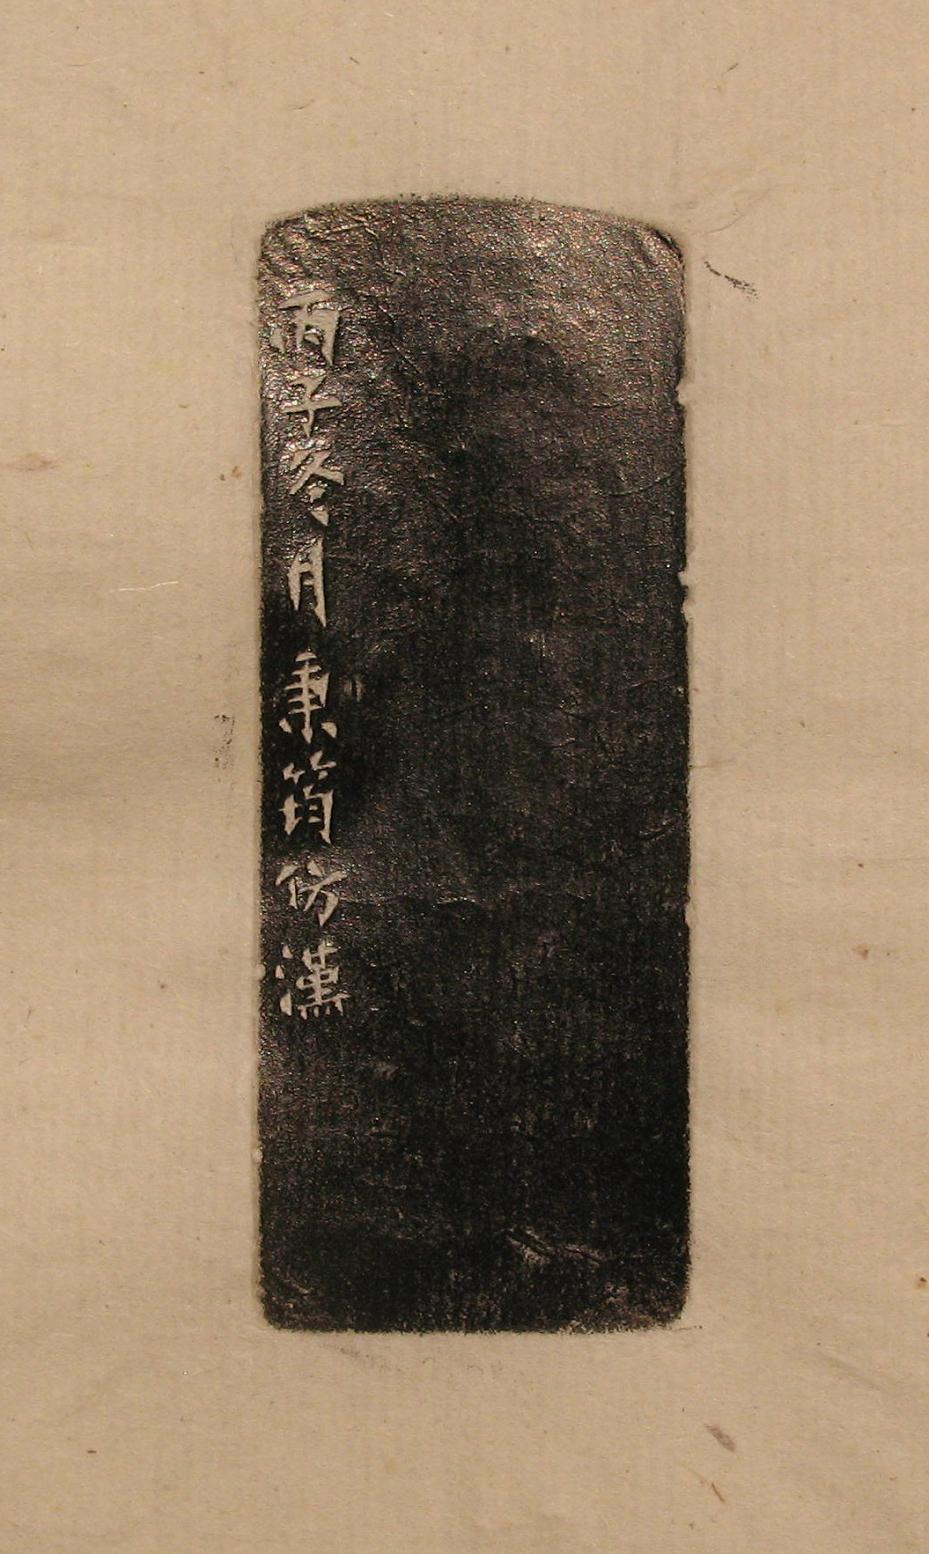 丙子冬月秉筠仿漢